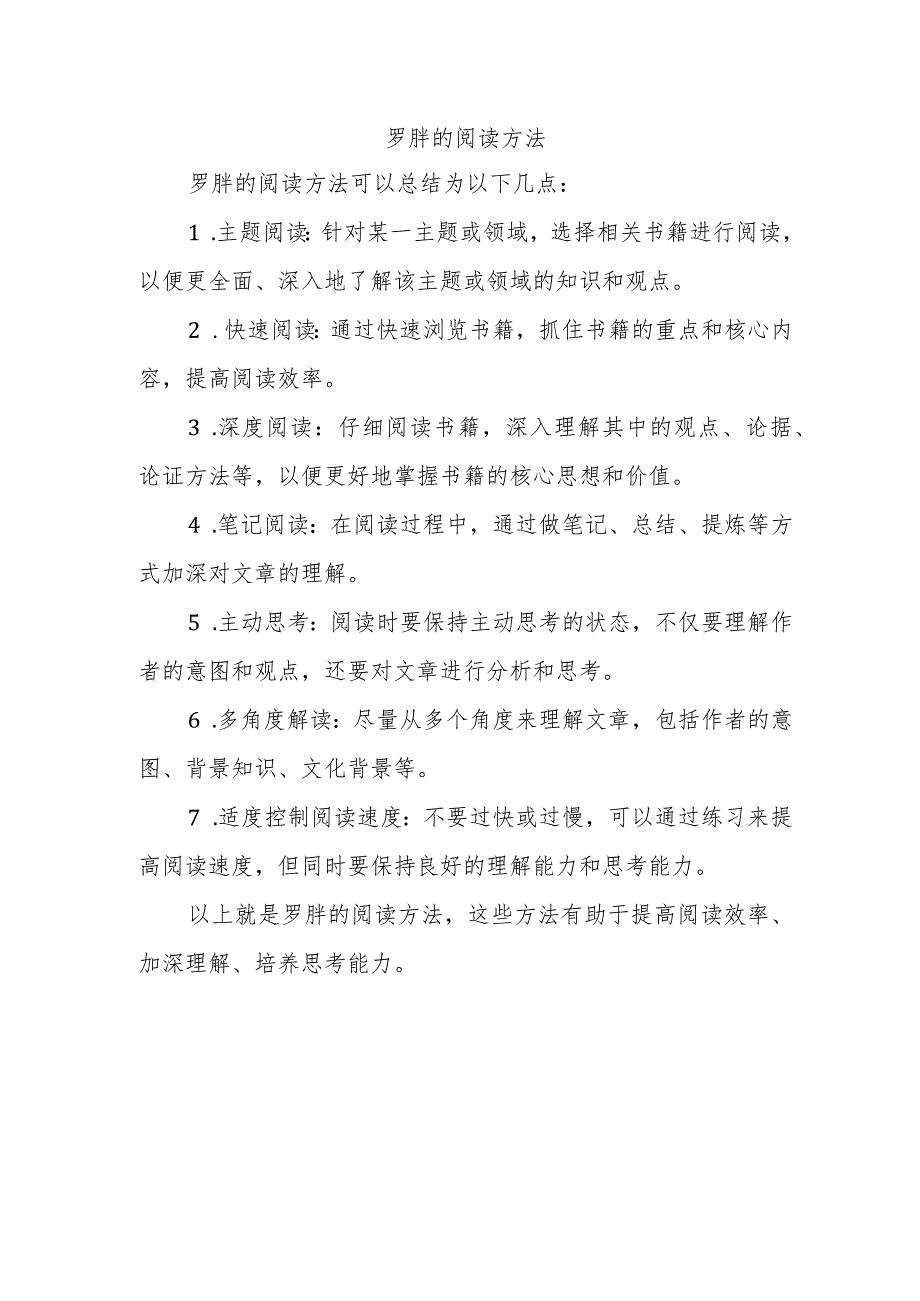 罗胖的阅读方法
罗胖的阅读方法可以总结为以下几点：
1 .主题阅读：针对某一主题或领域，选择相关书籍进行阅读，
以便更全面、深入地了解该主题或领域的知识和观点。
2 .快速阅读：通过快速浏览书籍，抓住书籍的重点和核心内
容，提高阅读效率。
3 .深度阅读：仔细阅读书籍，深入理解其中的观点、论据、
论证方法等，以便更好地掌握书籍的核心思想和价值。
4 .笔记阅读：在阅读过程中，通过做笔记、总结、提炼等方
式加深对文章的理解。
5 .主动思考：阅读时要保持主动思考的状态，不仅要理解作
者的意图和观点，还要对文章进行分析和思考。
6 .多角度解读：尽量从多个角度来理解文章，包括作者的意
图、背景知识、文化背景等。
7 .适度控制阅读速度：不要过快或过慢，可以通过练习来提
高阅读速度，但同时要保持良好的理解能力和思考能力。
以上就是罗胖的阅读方法，这些方法有助于提高阅读效率、
加深理解、培养思考能力。